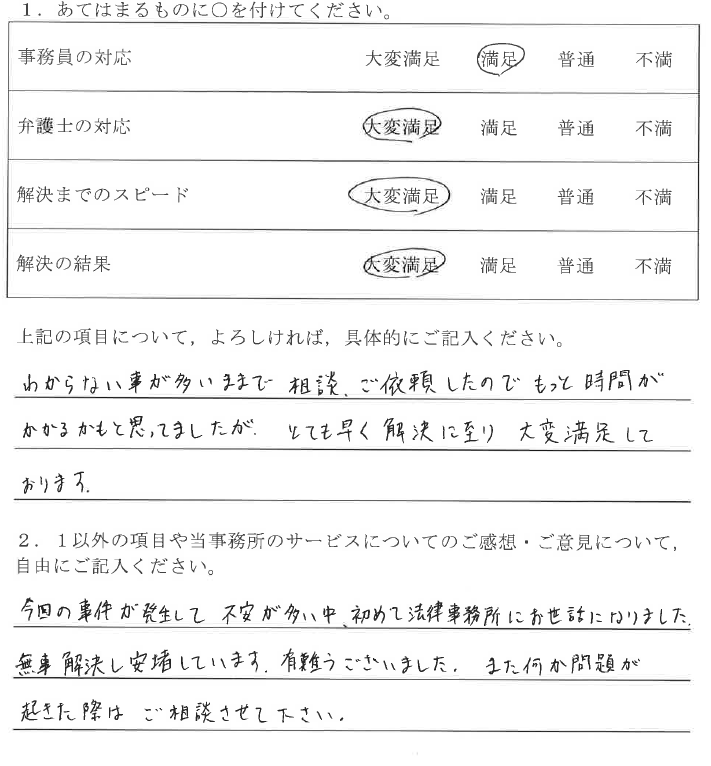 １．あてはまるものに○を付けてください。
事務員の対応 大変満足 満足 普通 不満
弁護士の対応 大変満足 満足 普通 不満
解決までのスピード 大変満足 満足 普通 不満
解決の結果 大変満足 満足 普通 不満
上記の項目について，よろしければ，具体的にご記入ください。
わからない事が多いままで 相談、ご依頼したので もっと時間が
かかるかもと思ってましたが、とても早く解決に至り 大変満足して
おります。
２．１以外の項目や当事務所のサービスについてのご感想・ご意見について，
自由にご記入ください。
今回の事件が発生して 不安が多い中、初めて法律事務所にお世話になりました。
無事解決し安堵しています。有難うございました。また何か問題が
起きた際は ご相談させて下さい。